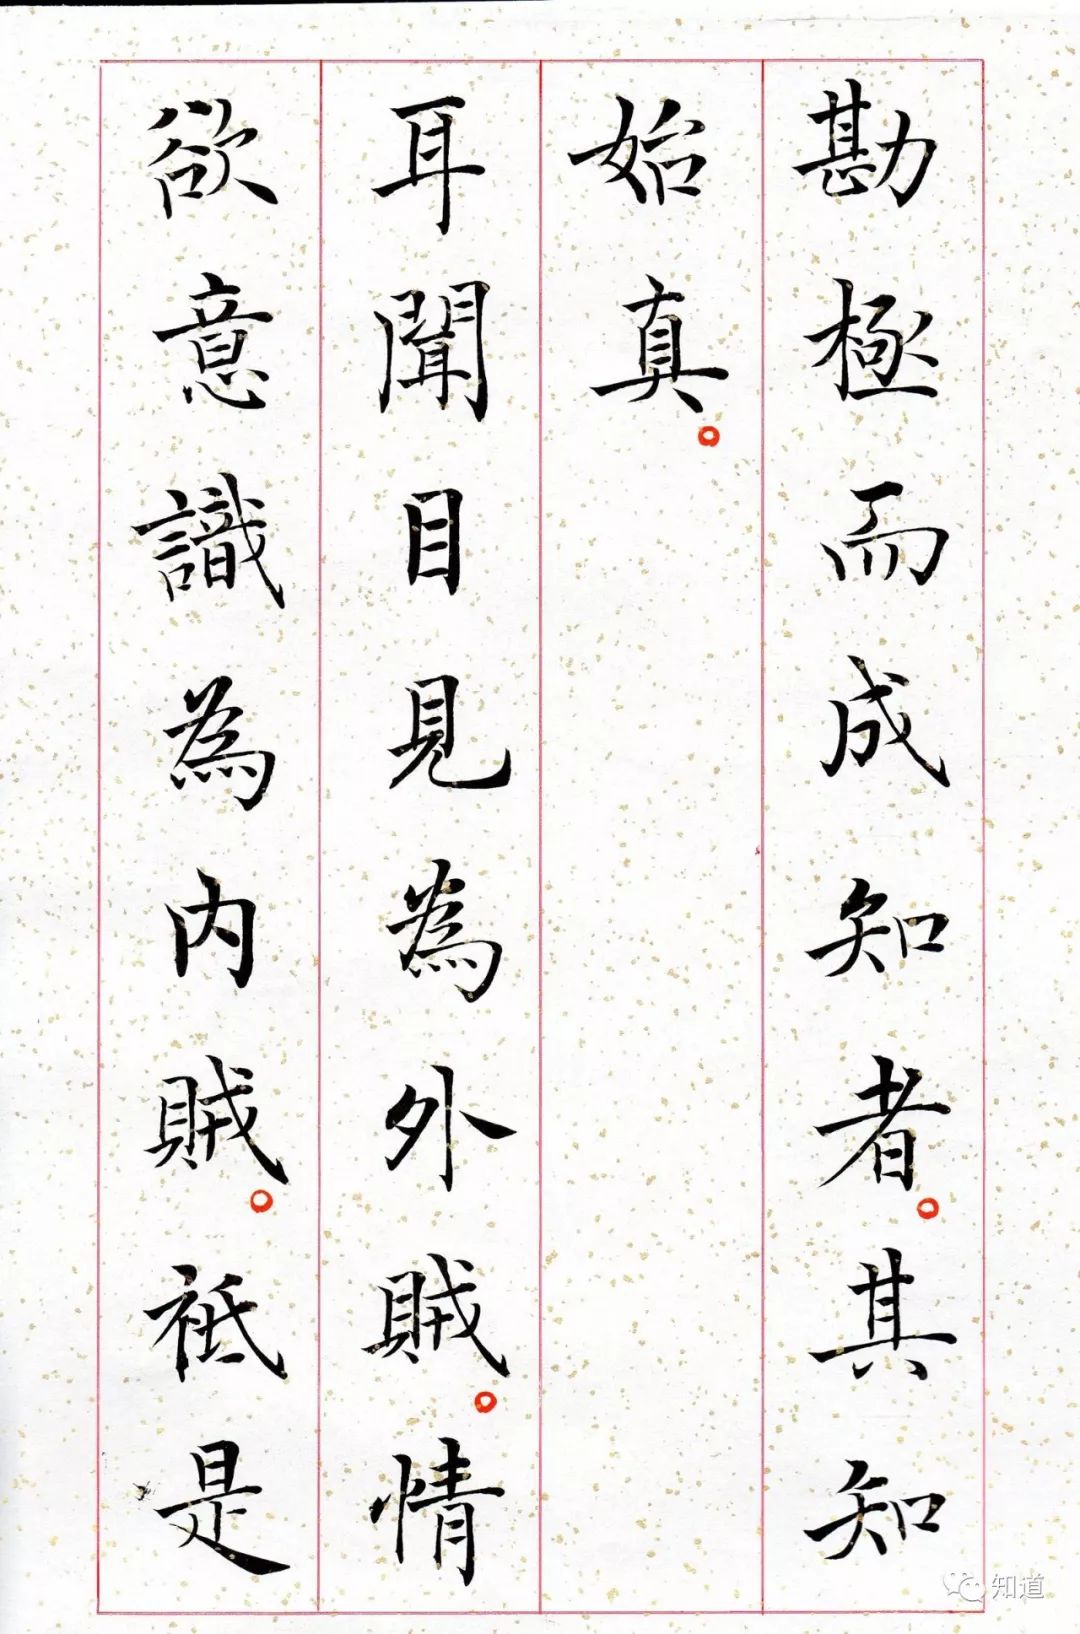 勘極而成知者。其知
始真。
耳聞目見為外賊。情
欲意識為內賊。祗是
知道